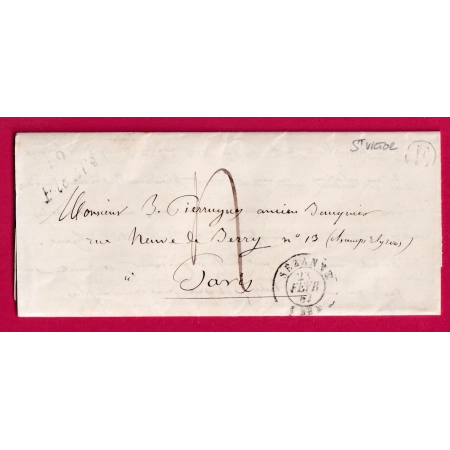 St VICTOR
E
Monsieur B. Pierrugues ancien Banquier
rue Neuve de Berry n° 13 (Champs Elysées)
à
Paris
SEZANNE
FEVR